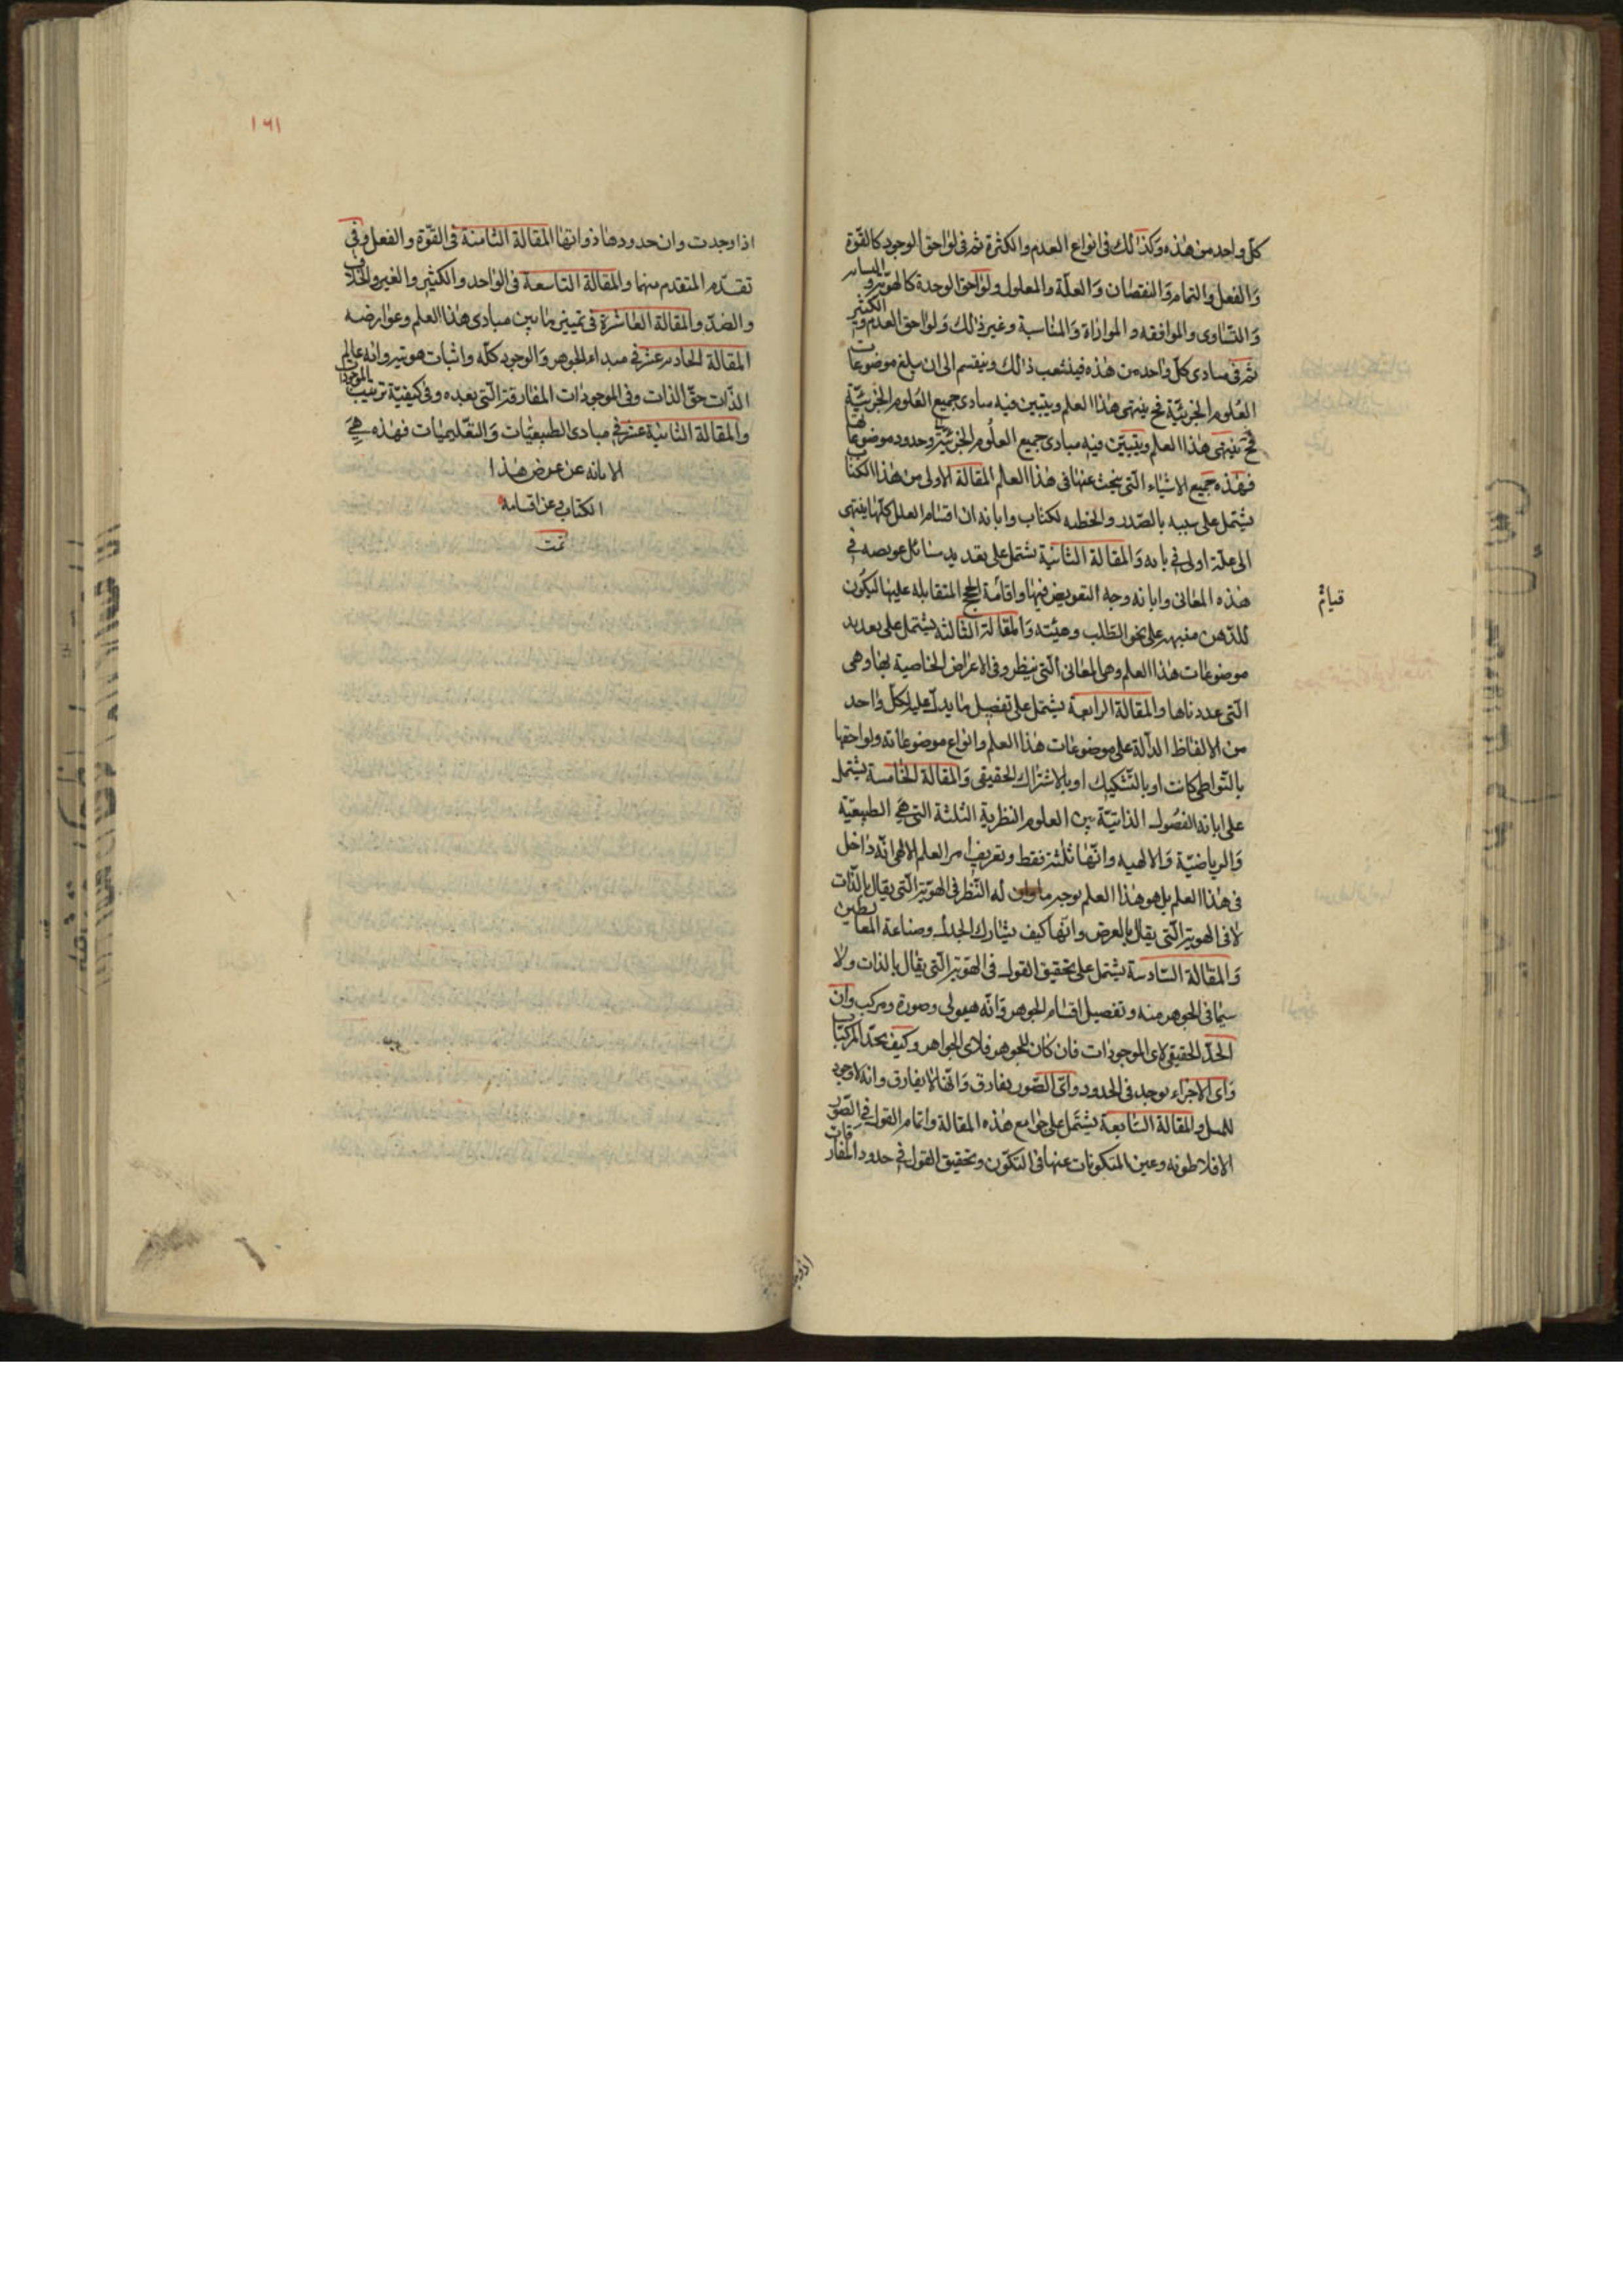 كل واحد من هذه وكذلك فى انواع العدم والكثرة ثم فى لواحق الوجود كالقوة
والفعل والتمام والنقصان والعلة والمعلول ولواحق الوحدة كالهوية و
والتساوى والموافقه والموازاة والمناسبة وغير ذلك ولواحق العدم والكثير
ثم فى مبادى كل واحد من هذه فيتشعب ذلك وينقسم الى ان يبلغ موضوعات
العلوم الجزئية فح ينتهى هذا العلم ويتبين فيه مبادى جميع العلوم الجزئية
فح ينتهى هذا العلم ويتبين فيه مبادى جميع العلوم الجزئية وحدود موضوعاتها
فهذه جميع الاشياء التى يبحث عنها فى هذا العلم المقالة الاولى من هذا الكتاب
يشتمل على بالصدر والخطبه لكتاب وابانه ان اقسام العلل كلها ينتهى
الى علة اولى فى بابه والمقالة الثانية يشتمل على تعديد مسائل عويصه فى
هذه المعانى وابانه وجه التعويض فيها واقامة الحجج المتقابله عليها ليكون
قيائم
للذهن على نحو الطلب وهيئته والمقالة الثالثه يشتمل على تعديد
موضوعات هذا العلم وهى المعانى التى ينظر وفى الاعراض الخاصية بها وهى
التى عددناها والمقالة الرابعة يشتمل على تفصيل ما يدل عليه لكل واحد
من الالفاظ الدالة على موضوعات هذا العلم وانواع موضوعاته ولواحقها
بالتواطى كانت او بالتشكيك او بالاشتراك الحقيقى والمقالة الخامسة يشتمل
على ابانه الفصول الذاتية بين العلوم النظرية الثلثة التى هى الطبيعية
والرياضية والالهيه وانها ثلثة فقط وتعريف امر العلم الالهى انه داخل
فى هذا العلم بل هو هذا العلم بوجه ما له النظر فى الهوية التى يقال بالذات
لا فى الهوية التى يقال بالعرض وانها كيف يشارك الجدل وصناعة المغالطين
والمقالة السادسة يشتمل على تحقيق القول فى الهوية التى يقال بالذات ولا
سيما فى الجوهر منه وتفصيل اقسام الجوهر وانه هيولى وصورة ومركب وان
الحد الحقيقى لاى الموجودات فان كان للجوهر فلاى الجواهر وكيف يحد المركبات
واى الاجزاء يوجد فى الحدود واى الصور يفارق وانها لا يفارق وانه لا وجود
للمثل والمقالة السابعة يشتمل على جوامع هذه المقالة واتمام القول فى الصور
الافلاطونه وعين المتكونات عنها فى التكون وتحقيق القول فى حدود المفارقات
١٦١
اذا وجدت وان حدودها ذواتها المقالة الثامنة فى القوة والفعل وفى
تقدم المتقدم منهما والمقالة التاسعة فى الواحد والكثير والغير والخلاف
والضد والمقالة العاشرة فى تمييز ما بين مبادى هذا العلم وعوارضه
المقالة الحادىعشر فى مبداء الجوهر والوجود كله واثبات هويته وانه عالم
الذات حق الذات وفى الموجودات المفارقة التى بعده وفى كيفية ترتيب الموجودات
والمقالة الثانية عشر فى مبادى الطبيعيات والتعليميات فهذه هى
الابانه عن عرض هذا
الكتاب وعن اقسامه
تمت